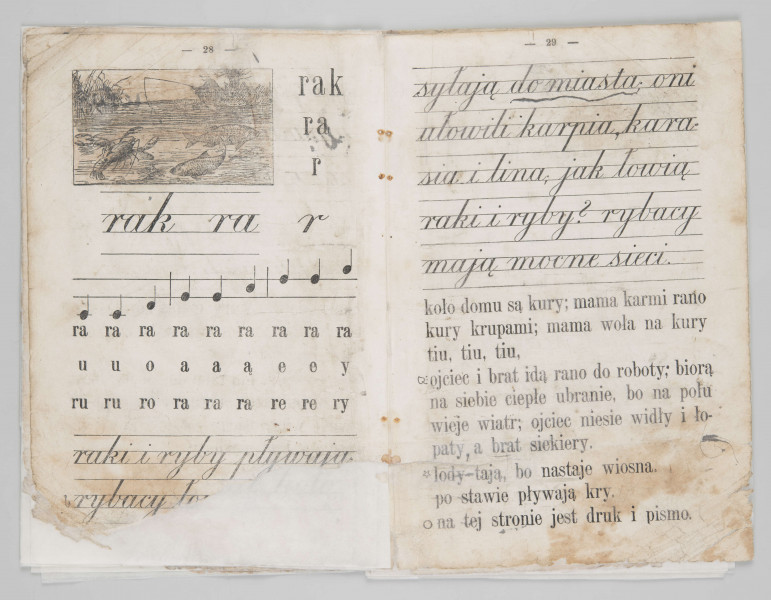 — 28 —
rak
ra
r
rak ra r
ra ra ra ra ra ra ra ra ra
u u o a a ą e e y
ru ru ro ra ra ra re re ry
raki i ryby pływają.
rybacy
— 29 —
syłają do miasta; oni
ułowili karpia, kara-
sia i lina; jak łowią
raki i ryby? rybacy
mają mocne sieci.
koło domu są kury; mama karmi rano
kury krupami; mama woła na kury
tiu, tiu, tiu,
ojciec i brat idą rano do roboty; biorą
na siebie ciepłe ubranie, bo na polu
wieje wiatr; ojciec niesie widły i ło-
paty, a brat siekiery.
lody tają, bo nastaje wiosna.
po stawie pływają kry.
na tej stronie jest druk i pismo.